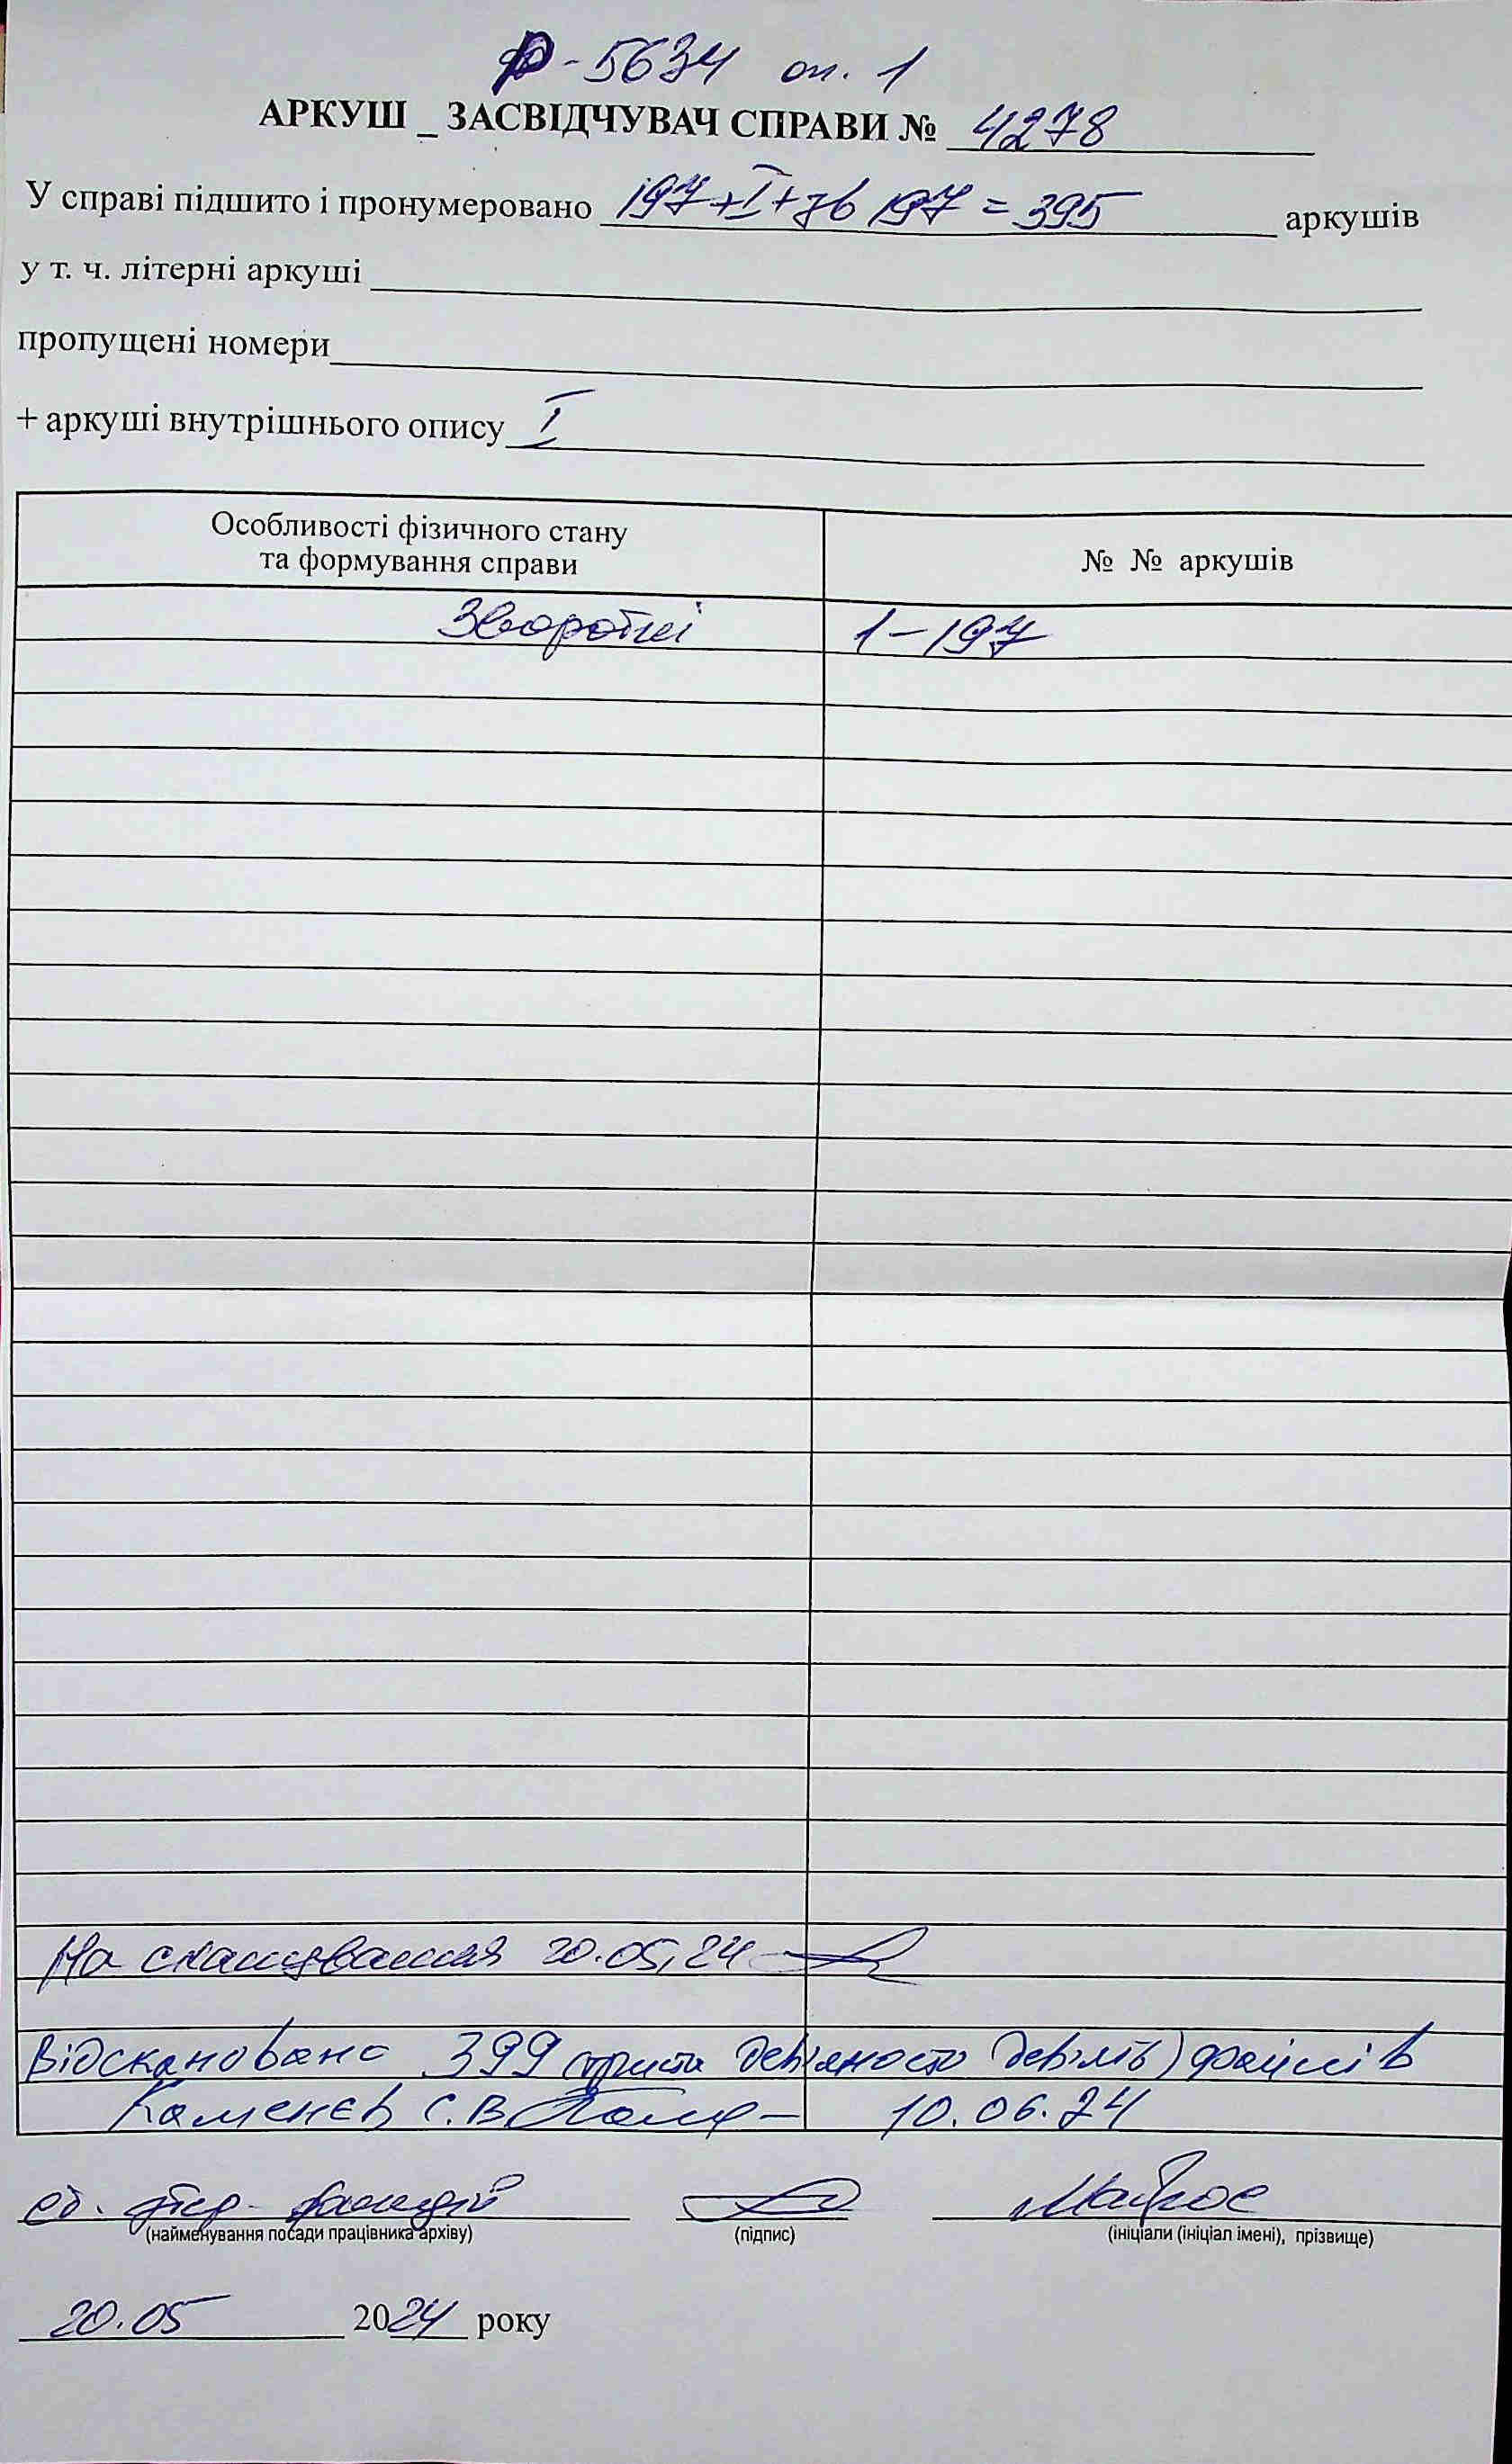 Ф-5634 оп. 1
АРКУШ _ ЗАСВІДЧУВАЧ СПРАВИ № 4278
У справі підшито і пронумеровано 197+I+зв 197 = 395 аркушів
у т. ч. літерні аркуші
пропущені номери
+ аркуші внутрішнього опису I
Особливості фізичного стану
та формування справи
№ № аркушів
Зворотні 1-197
На сканування 20.05.24
Відскановано 399 (триста дев'яносто дев'ять) файлів
Каменєв С.В. 10.06.24
(найменування посади працівника архіву) (підпис) (ініціали (ініціал імені), прізвище)
20.05 2024 року